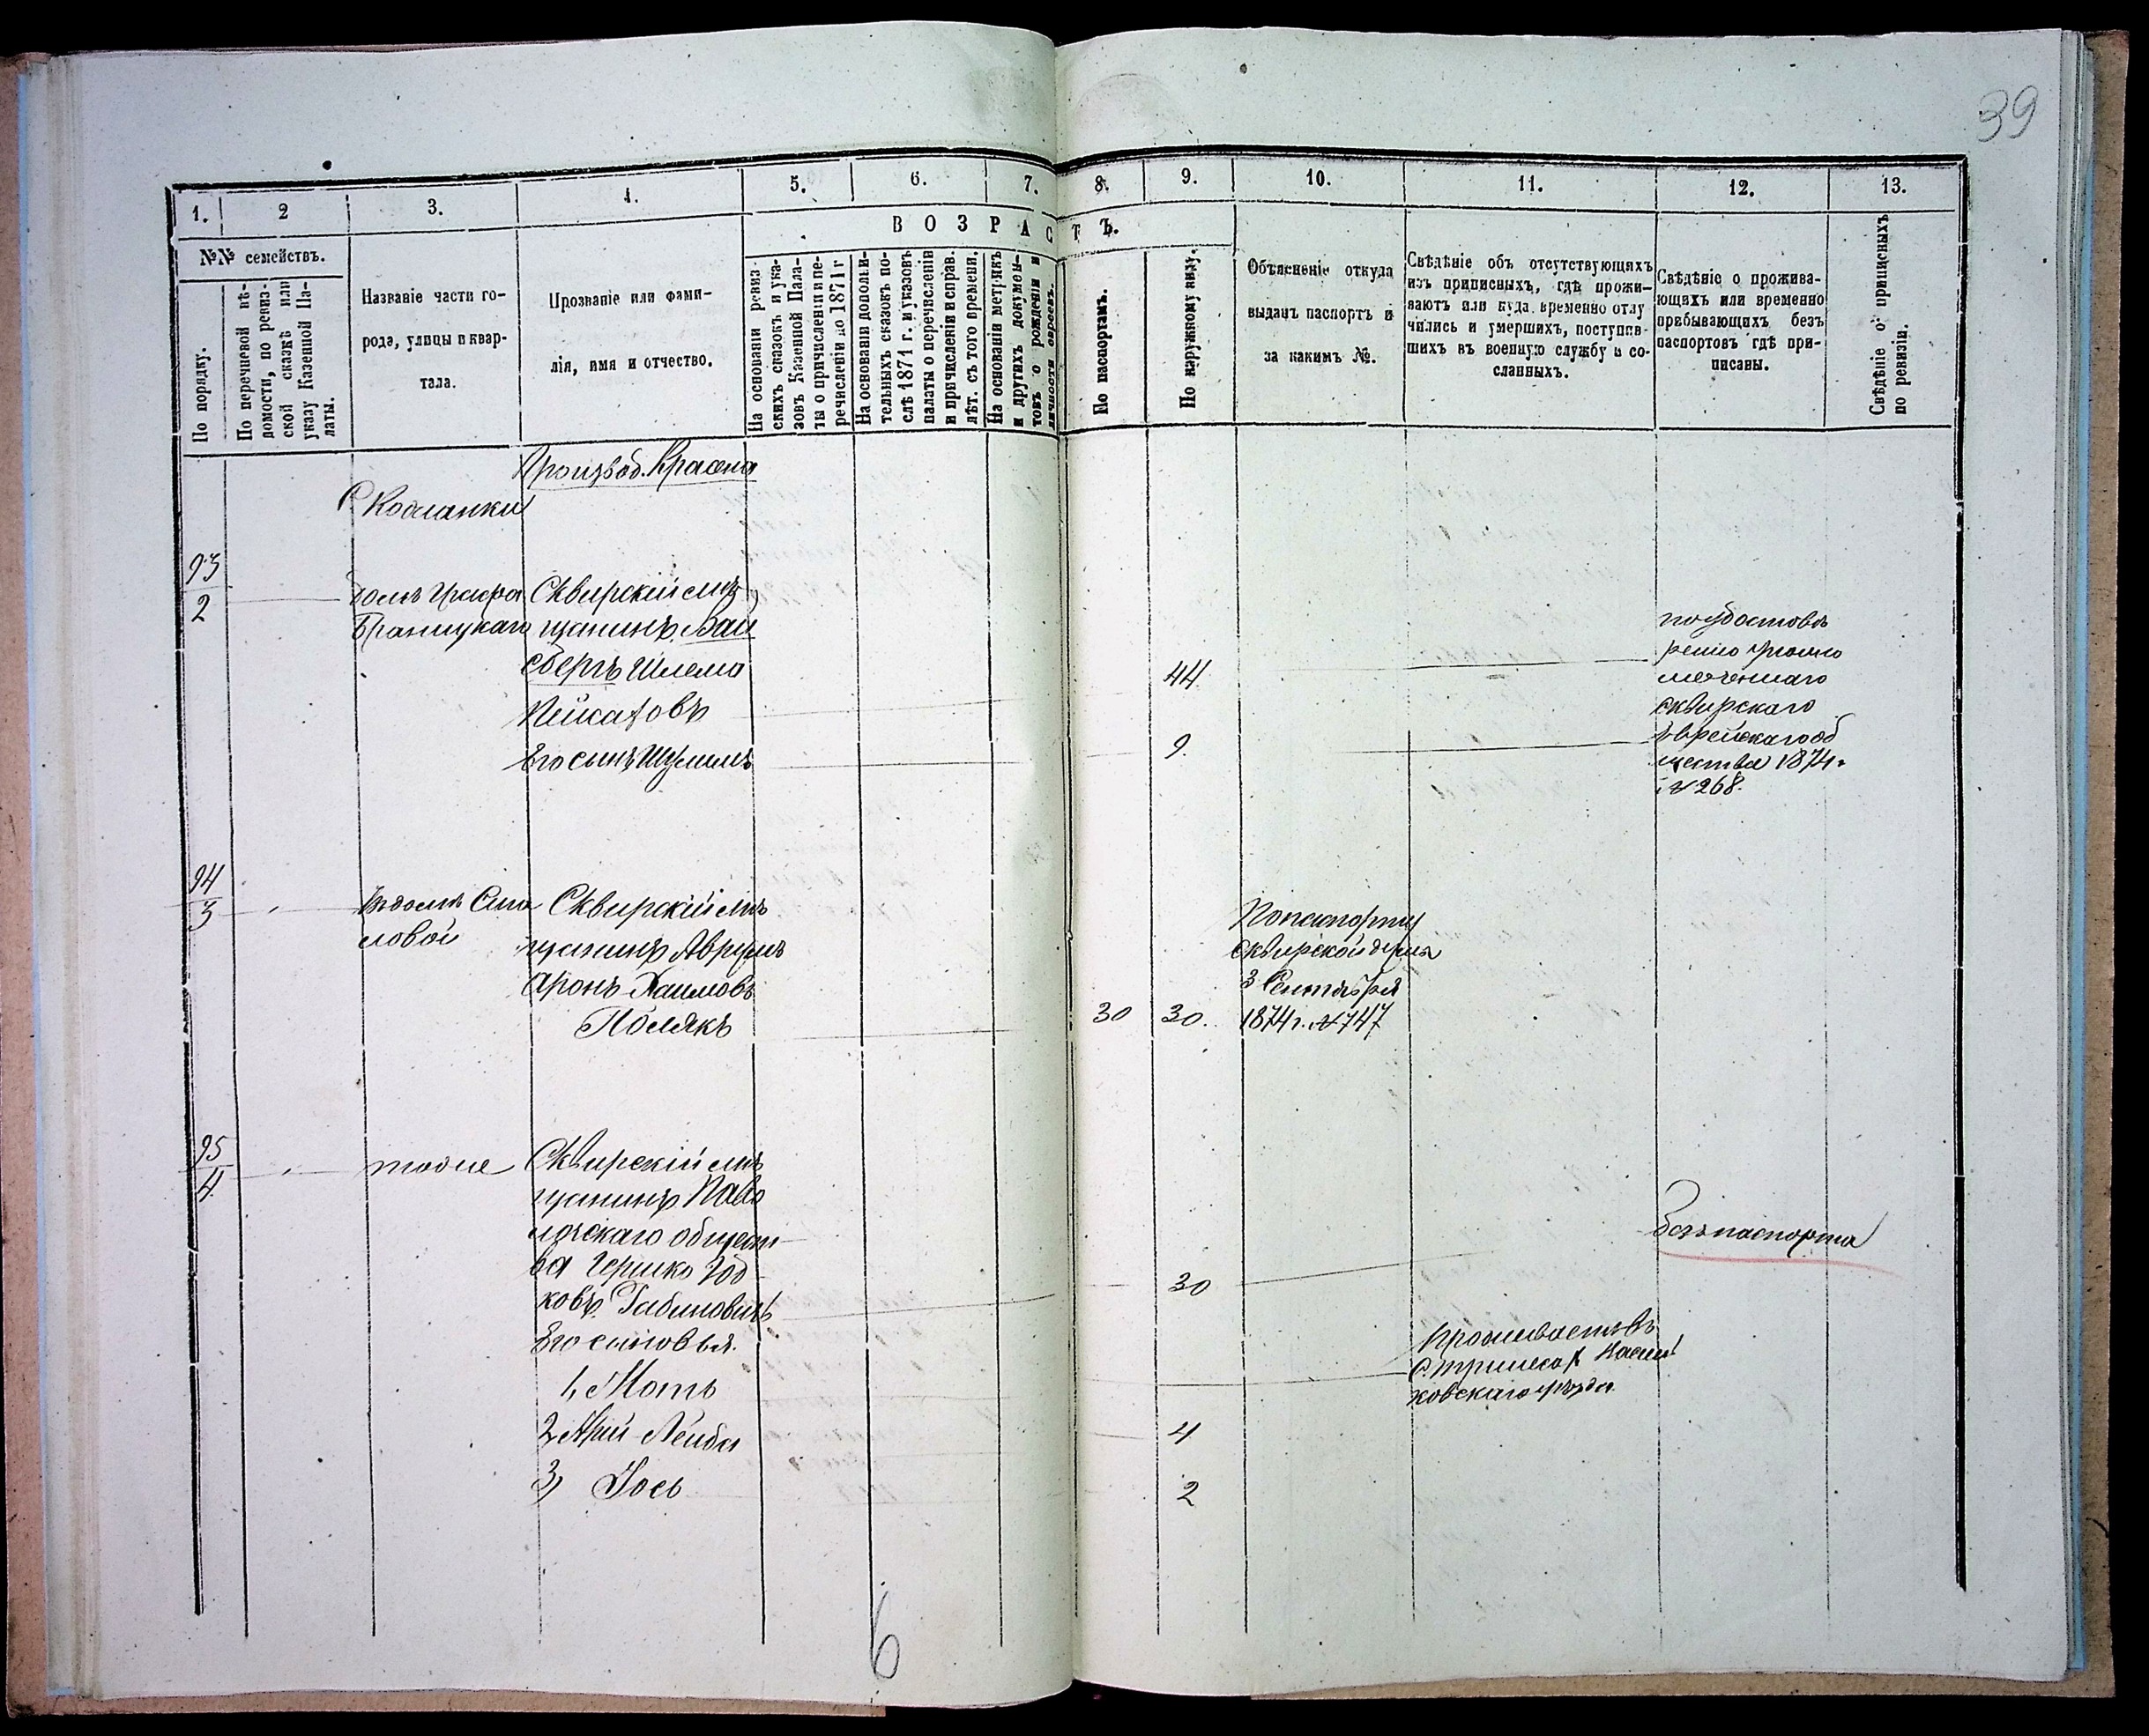 39
1. 2 3. 4. 5. 6. 7. 8. 9. 10. 11. 12. 13.
ВОЗРАСТЪ.
№№ семействъ.
По порядку.
По перечневой вѣ-
домости, по ревиз-
ской сказкѣ или
указу Казенной Па-
латы.
Названіе части го-
рода, улицы и квар-
тала.
Прозваніе или фами-
лія, имя и отчество.
На основаніи ревиз-
скихъ сказокъ и ука-
зовъ Казенной Пала-
ты о причисленіи и пе-
речисленіи до 1871 г
На основаніи дополни-
тельныхъ сказокъ по-
слѣ 1871 г. и указовъ
палаты о перечисленіи
и причисленіи и справ.
лѣт. съ того времени.
На основаніи метрикъ
и другихъ докумен-
товъ о рожденіи и
личности евреевъ.
По паспортамъ.
По наружному виду.
Объясненіе откуда
выданъ паспортъ и
за какимъ №.
Свѣдѣніе объ отсутствующихъ
изъ приписныхъ, гдѣ прожи-
ваютъ или куда временно отлу
чились и умершихъ, поступив-
шихъ въ военную службу и со-
сланныхъ.
Свѣдѣніе о прожива-
ющихъ или временно
пребывающихъ безъ
паспортовъ гдѣ при-
писаны.
Свѣдѣніе о приписныхъ
по ревизіи.
Производ. Красна
С. Кошланки
93
2
домъ Графа
Браницкаго
Сквирскій мѣ-
щанинъ Вай
сбергъ Шлема
Пейсаховъ
44
Его сынъ Шулимъ
9.
по удостовѣ
ренію
сквирскаго
Еврейскаго об
щества 1874 г
№ 268.
94
3
Въ домѣ
ловой
Сквирскій мѣ
щанинъ Аврумъ
Аронъ Хаимовъ
Полякъ
30 30.
По паспорту
Сквирской думы
3 Сентября
1874 г. № 747
95
4
тоже
Сквирскій мѣ
щанинъ Паво
лочскаго общест-
ва Гершко Іод-
ковъ Рабиновичъ
30
Безъ паспорта
Его сыновья.
1, Мотъ
Проживаетъ въ
С. Триліссахъ Василь
ковскаго уѣзда.
2, Арій-Лейба
4
3, Іось
2
6